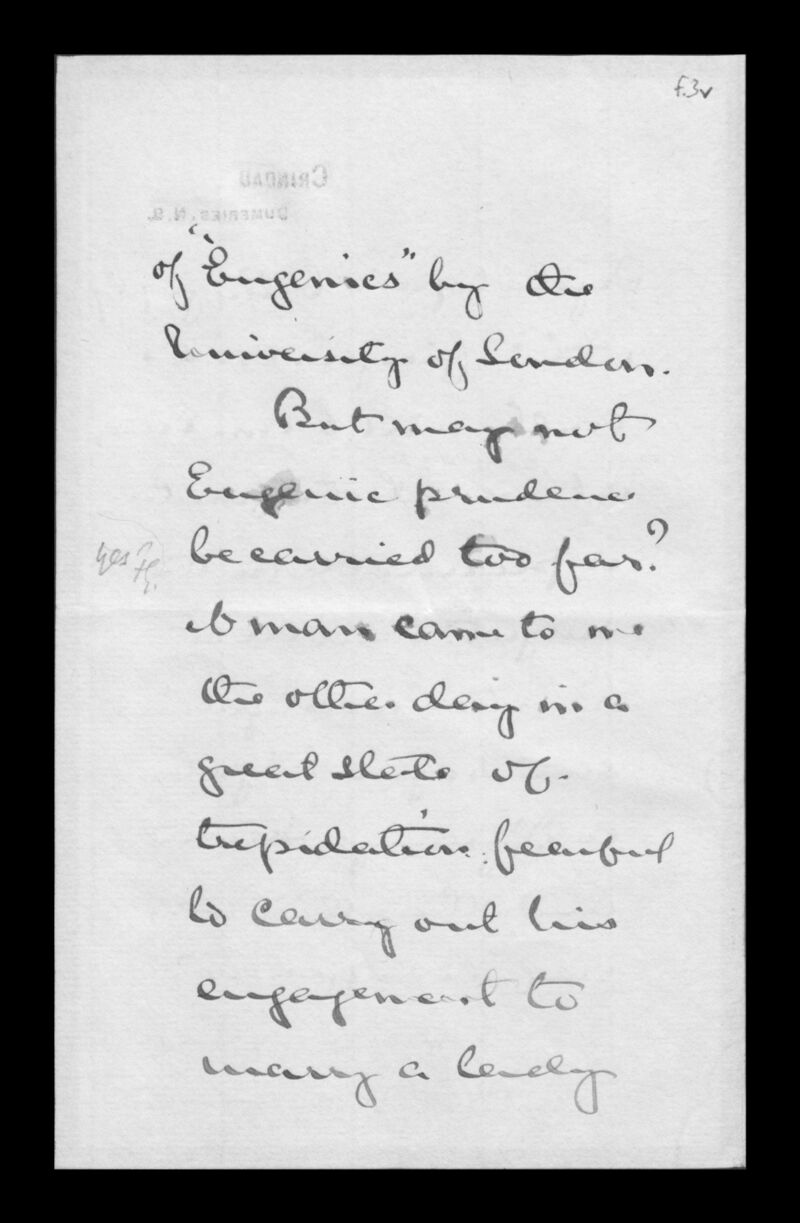 f.3v
CRINDAU
DUMFRIES, N.B.
of "Eugenics" by the
University of London.
But may not
Eugenic prudence
be carried too far?
yes FG.
A man came to me
the other day in a
great state of
trepidation, fearful
to carry out his
engagement to
marry a lady